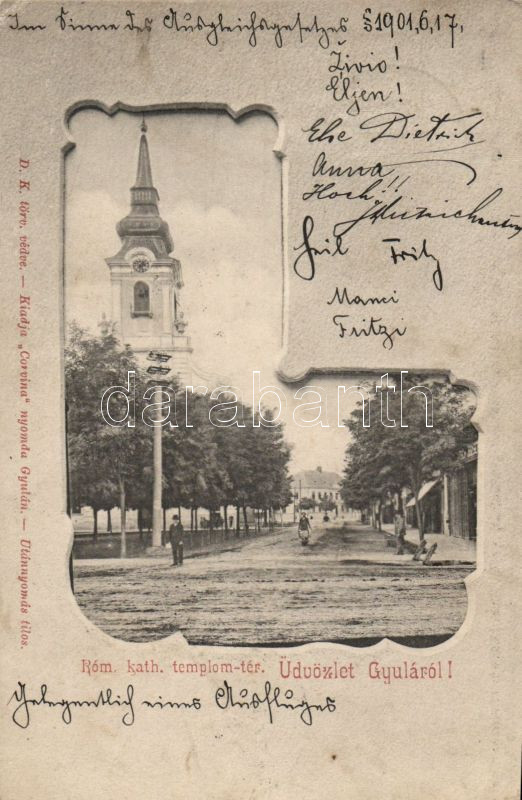 Im Sinne des Ausgleichsgesetzes §1901,6,17,
Živio!
Eljen!
Else Dietrich
Anna
Hoch!!
Heil Fritz
Manci
Fritzi
darabanth
D. K. törv. védve. — Kiadja „Corvina" nyomda Gyulán. — Utánnyomás tilos.
Róm. kath. templom-tér. Üdvözlet Gyuláról!
Gelegentlich eines Ausfluges